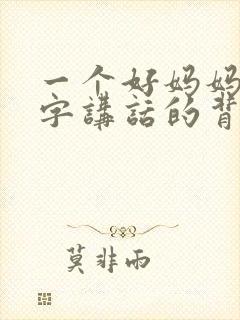 一个好妈妈
字講話的背
莫非雨